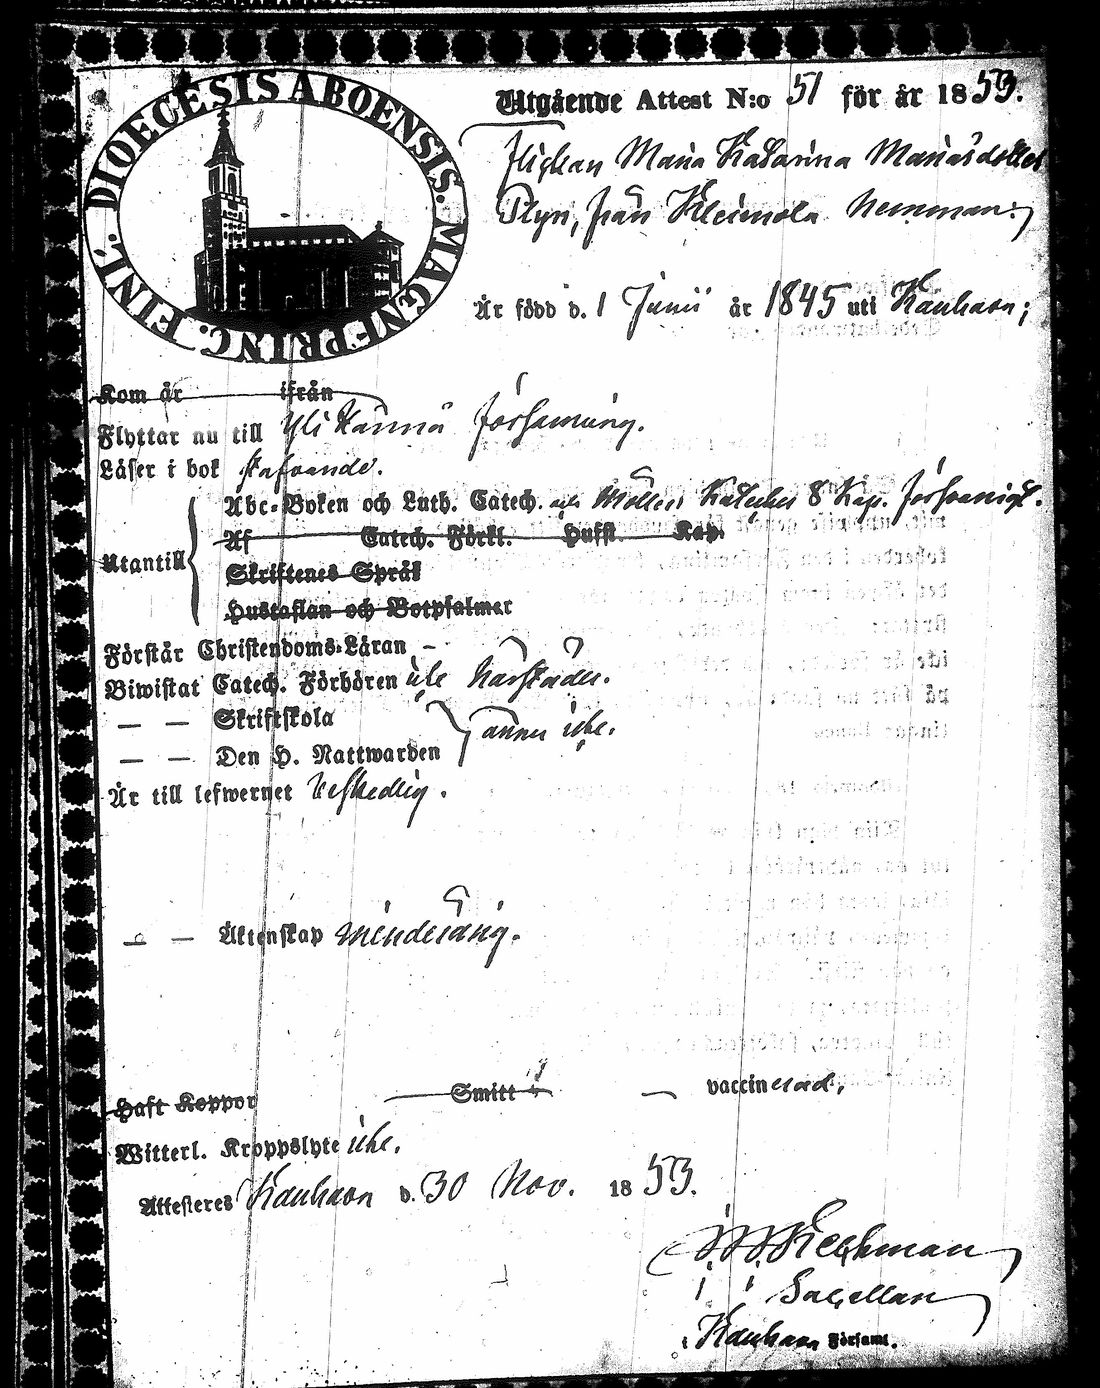 DIOECESIS ABOENSIS. MAGNI PRINC. FINL.
Utgående Attest N:o 51 för år 1853.
Flickan Maria Katarina Mariasdotter
från Kleimola hemman:
Är född d. 1 Junii år 1845 uti Kauhava;
Kom år ifrån
Flyttar nu till Yli Kannu församling.
Läser i bok stafvande.
Utantill
Abc-Boken och Luth. Catech. och Möllers 8 Kap. försvarligt.
Af Catech. Förkl. Hufst. Kap.
Skriftenes Språk
Hustaflan och Botpsalmer
Förstår Christendoms-Läran -
Biwistat Catech. Förhören icke
— — Skriftskola
— — Den H. Nattwarden ännu icke.
Är till lefwernet beskedlig.
— — Äktenskap minderårig.
Haft Koppor Smitt — vaccinerad,
Witterl. Kroppslyte icke.
Attesteres Kauhava d. 30 Nov. 1853.
Sacellan
i Kauhava Församl.